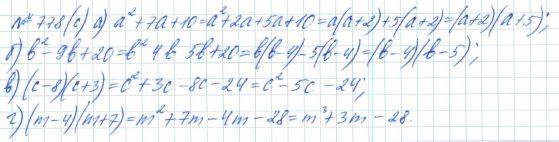 № 778(с) а) a²+7a+10=a²+2a+5a+10=a(a+2)+5(a+2)=(a+2)(a+5);
б) b²-9b+20=b²-4b-5b+20=b(b-4)-5(b-4)=(b-4)(b-5);
в) (c-8)(c+3)=c²+3c-8c-24=c²-5c-24;
г) (m-4)(m+7)=m²+7m-4m-28=m³+3m-28.